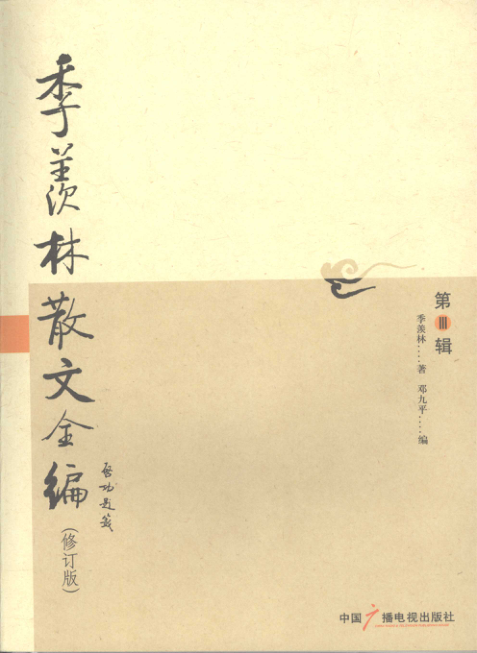 季羡林散文全编
(修订版)
启功题签
第Ⅲ辑
季羡林....著 邓九平....编
中国广播电视出版社